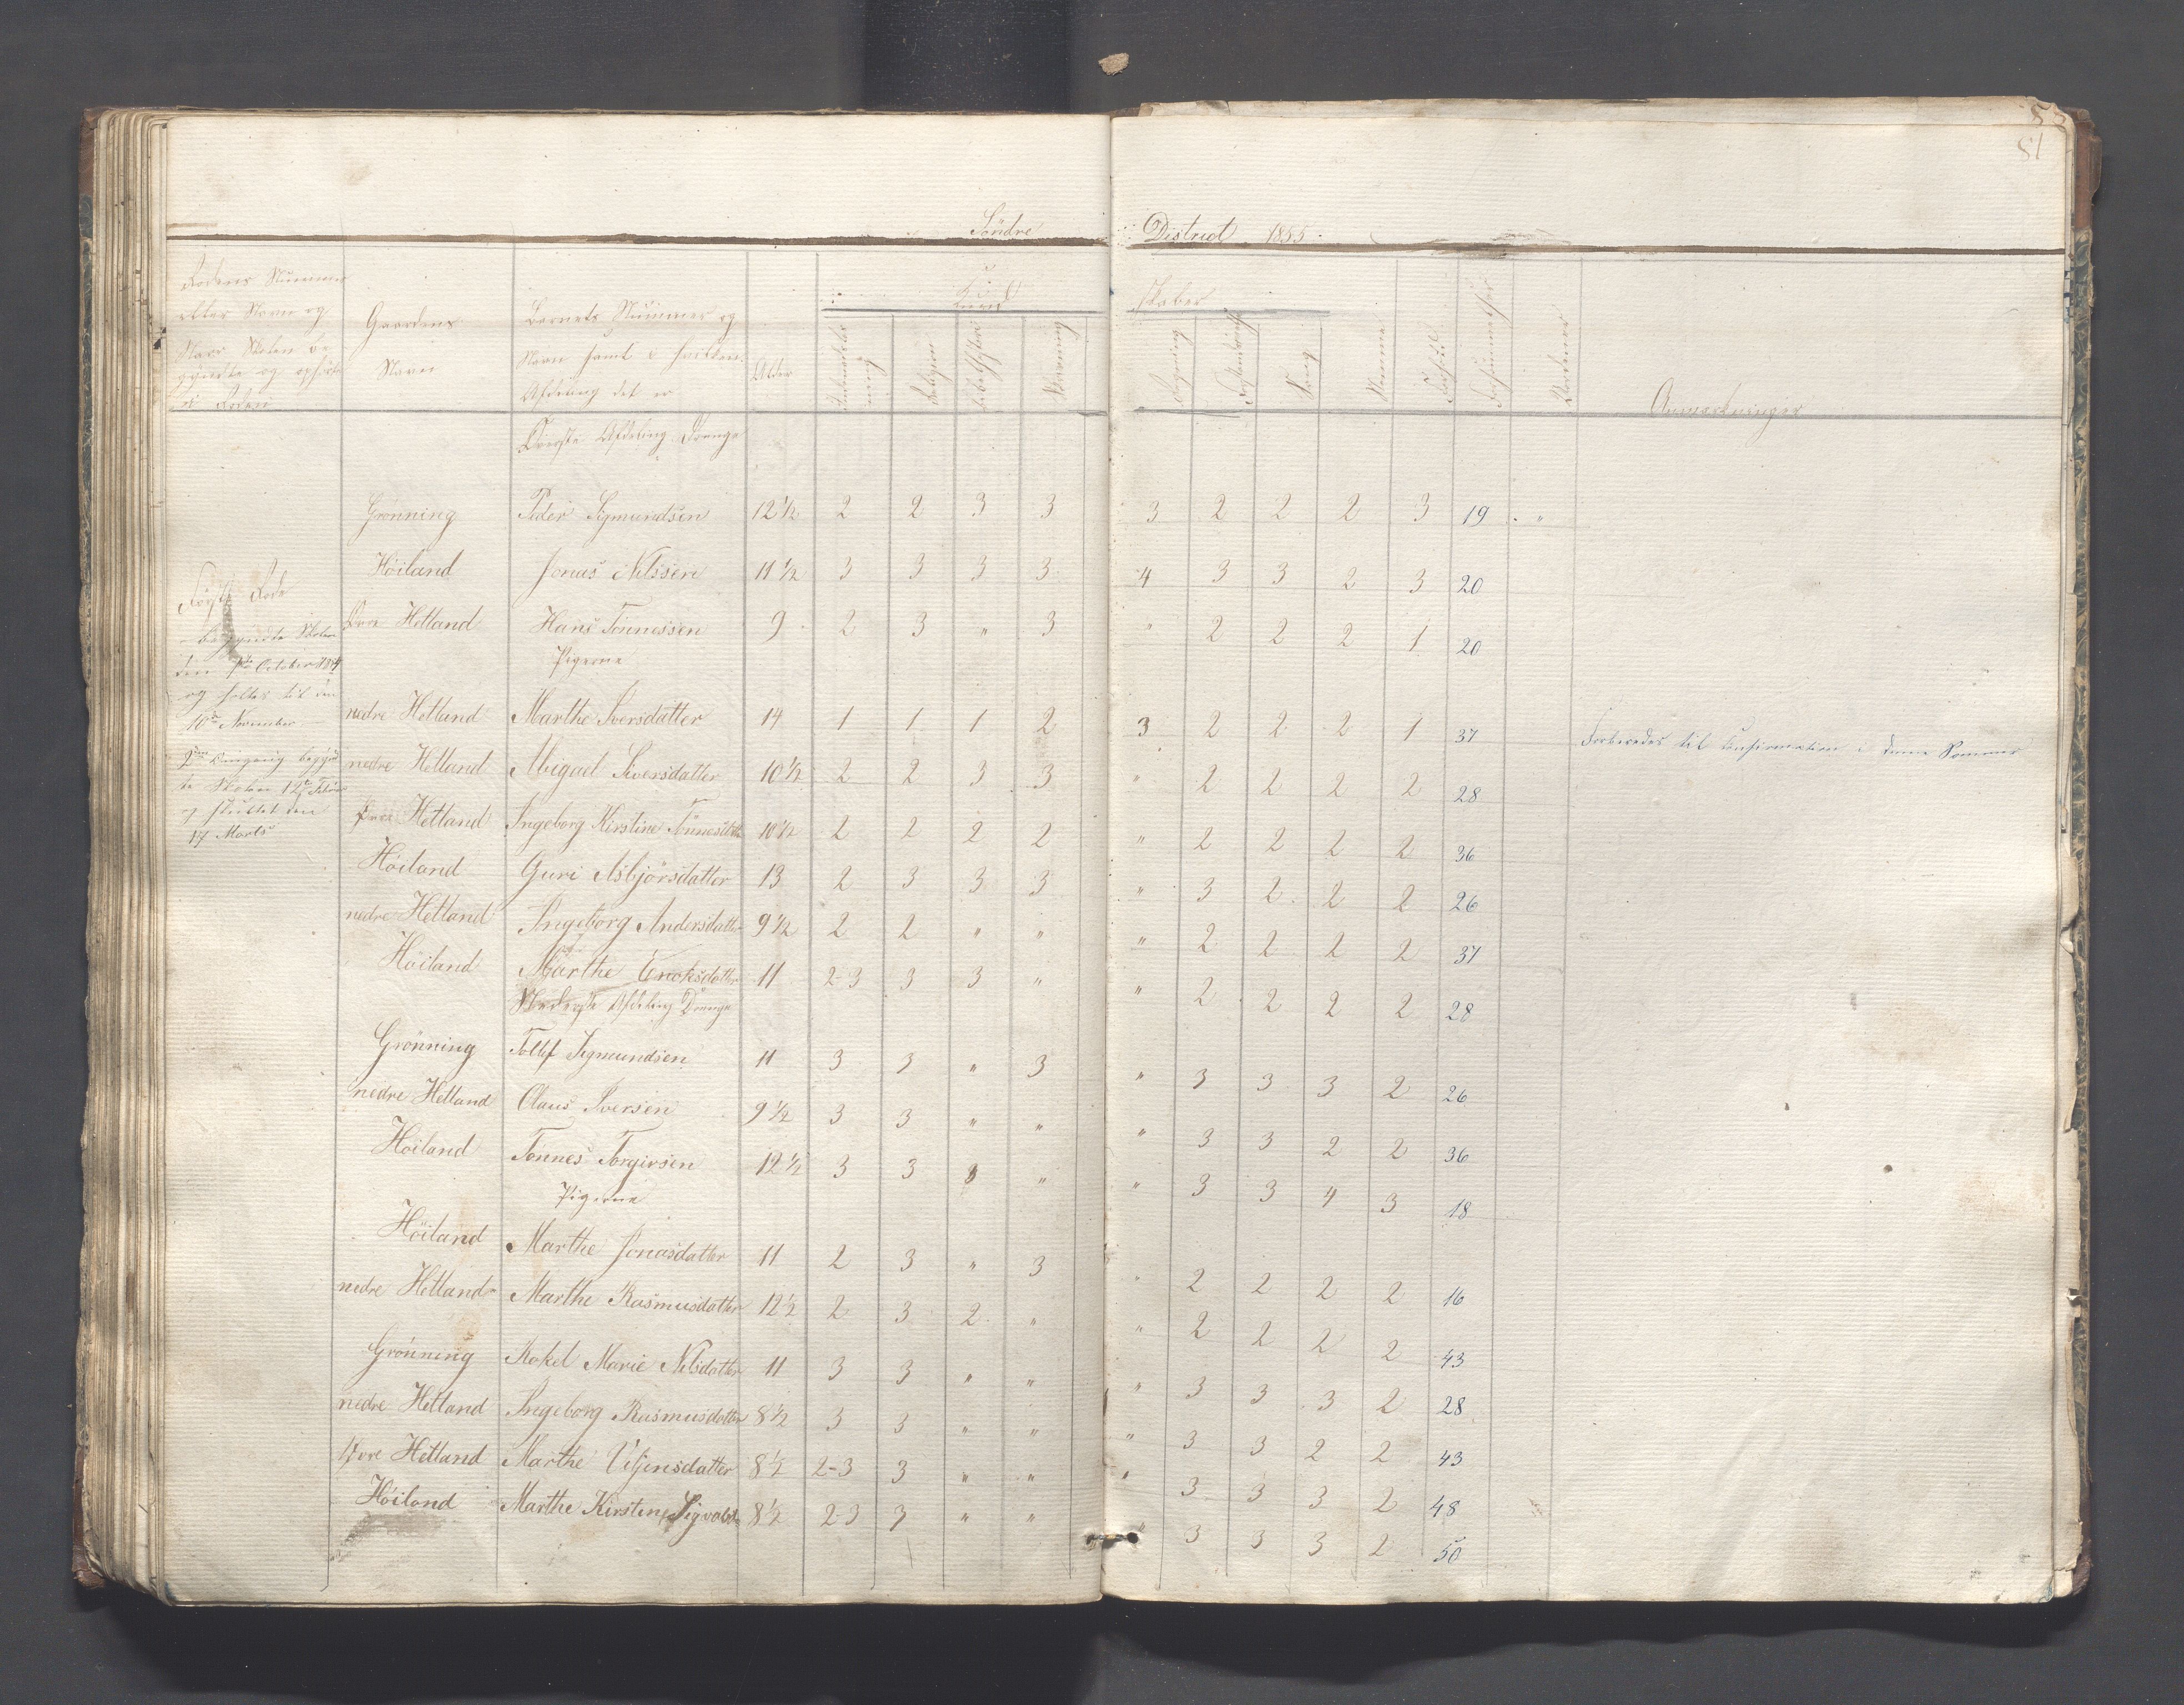 83
81
Söndre District 1855.
Rodens Nummer
eller Navn og
Naar Skolen be-
gyndte og ophörte
i Roden
Gaardens
Navn
Barnets Nummer og
Navn samt i hvilken
Afdeling det er
Alder
Kund
skaber
Religion
Skrivning
Regning
Sang
Anmærkninger
Øverste Afdeling Drenge
Grønning Peder Sigmundsen 12 1/2 2 2 3 3 3 2 2 2 3 19 . "
Höiland Jonas Nilssen 11 1/2 3 3 3 3 4 3 3 2 3 20
Øvre Hetland Hans Tönnessen 9 2 3 " 3 " 2 2 2 1 20
Pigerne
nedre Hetland Marthe Iversdatter 14 1 1 1 2 3 2 2 2 1 37 Forberedes til Confirmation i denne Sommer
nedre Hetland Abigael Siversdatter 10 1/2 2 2 3 3 " 2 2 2 2 28
Øvre Hetland Ingeborg Kirstine Tönnesdttr 10 1/2 2 2 2 2 " 2 2 2 2 36
Höiland Guri Asbjörsdatter 13 2 3 3 3 " 3 2 2 2 26
nedre Hetland Ingeborg Andersdatter 9 1/2 2 2 " " " 2 2 2 2 37
Höiland Marthe Enoksdatter 11 2-3 3 3 " " 2 2 2 2 28
Nederste Afdeling Drenge
Grönning Tollef Sigmundsen 11 3 3 " 3 " 3 3 3 2 26
nedre Hetland Olaus Iversen 9 1/2 3 3 " " " 3 3 2 2 36
Höiland Tönnes Torgersen 12 1/2 3 3 " " 3 3 4 3 18
Pigerne
Höiland Marthe Jonasdatter 11 2 3 " 3 " 2 2 2 2 16
nedre Hetland Marthe Rasmusdatter 12 1/2 2 3 2 " " 2 2 2 2 43
Grönning Rakel Marie Nilsdatter 11 3 3 " " " 3 3 3 2 28
nedre Hetland Ingeborg Rasmusdatter 8 1/2 3 3 " " " 3 3 2 2 43
Øvre Hetland Marthe Viljensdatter 8 1/2 2-3 3 " " " 3 3 3 2 48
Höiland Marthe Kirstine Sigvalds 8 1/2 2-3 3 " " " 3 3 3 2 50
Förste Rode
begyndte Skolen
den October 1854
og holdes til den
10de November
2den Omgang begynd
te Skolen 12te Febr
og sluttet den
17 Marts